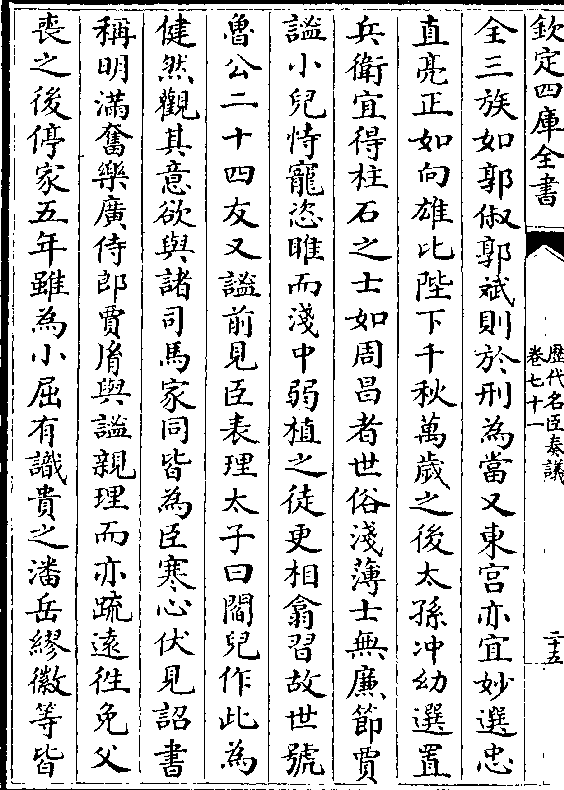 欽定四庫全書
歷代名臣奏議
卷七十一
二十五
全三族如郭俶郭斌則於刑為當又東宫亦宜妙選忠
直亮正如向雄比陛下千秋萬歲之後太孫冲幼選置
兵衛宜得柱石之士如周昌者世俗淺薄士無廉節賈
謐小兒恃寵恣睢而淺中弱植之徒更相翕習故世號
魯公二十四友又謐前見臣表理太子曰閻兒作此為
健然觀其意欲與諸司馬家同皆為臣寒心伏見詔書
稱明滿奮樂廣侍郎賈㣧與謐親理而亦疏遠徃免父
喪之後停家五年雖為小屈有識貴之潘岳繆徽等皆